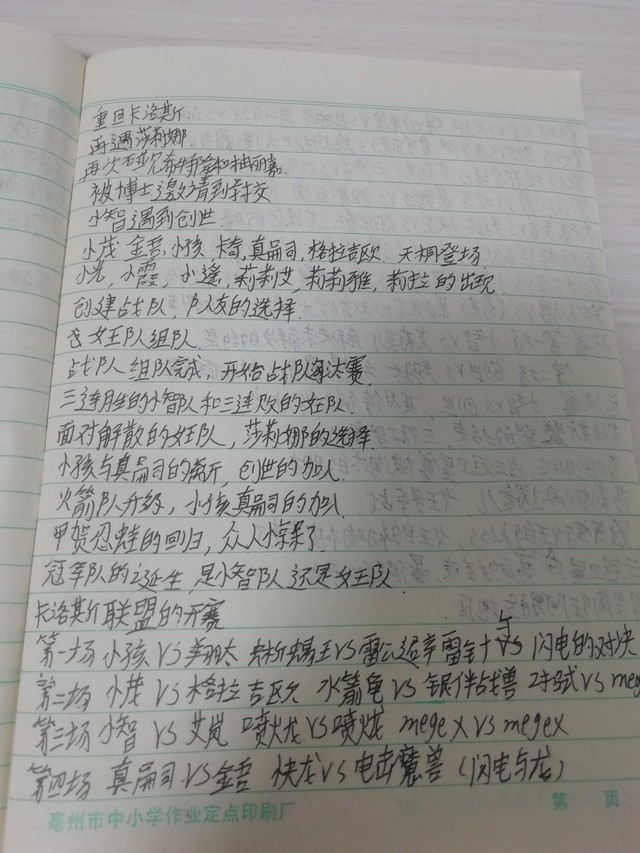 重回卡洛斯:
再遇莎莉娜.
再次
被博士邀请到学校
小智遇到创世.
小茂 金吾 小孩 卡奇,真嗣司,格拉吉欧 天桐登场
小光,小霞,小遥,莉莉艾,莉莉雅,莉拉的出现
创建战队,队友的选择.
女王队组队.
战队组队完成,开始战队淘汰赛.
三连胜的小智队和三连败的女王队.
面对解散的女王队,莎莉娜的选择.
小孩与真嗣司的离开,创世的加入.
火箭队升级,小孩真嗣司的加入.
甲贺忍蛙的回归,众人惊呆了.
冠军队的诞生,是小智队还是女王队.
卡洛斯联盟的开赛
第一场 小孩 VS 翔太 VS 雷公 VS 闪电的对决
第二场 小茂 VS 格拉吉欧 水箭龟 VS 银伴战兽 VS
第三场 小智 VS 艾岚 喷火龙 VS 喷火龙 mege X VS mege X
第四场 真嗣司 VS 金吾 快龙 VS 电击魔兽 (闪电与龙)
亳州市中小学作业定点印刷厂
第 页